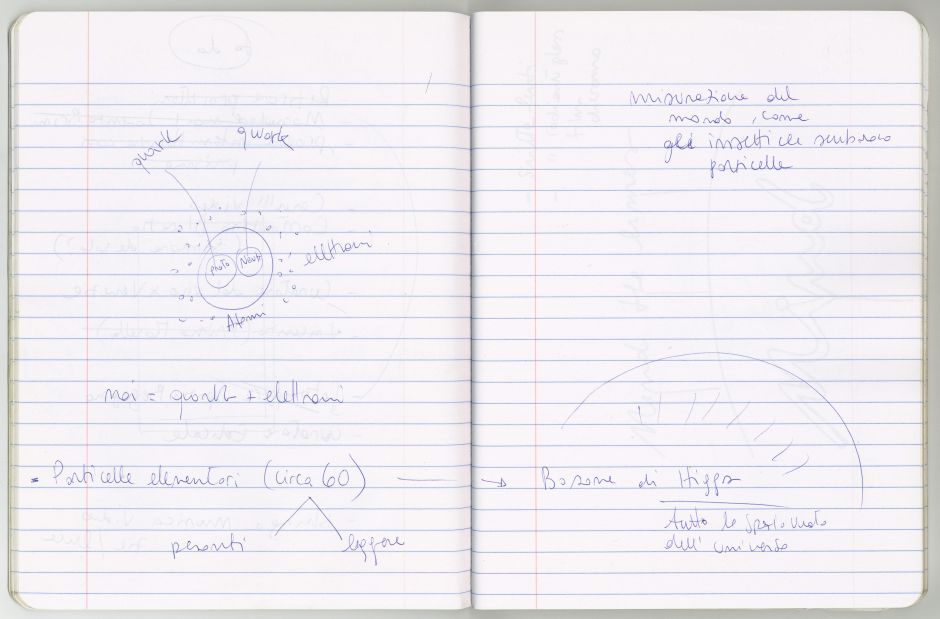 quark
qwork
proto
Neut
elettroni
Atomi
noi = quark + elettroni
= Particelle elementari (circa 60)
pesanti
leggere
misurazione del
mondo, come
gli insetti che sembrano
particelle
→ Bosone di Higgs
tutto lo spazio vuoto
dell'universo